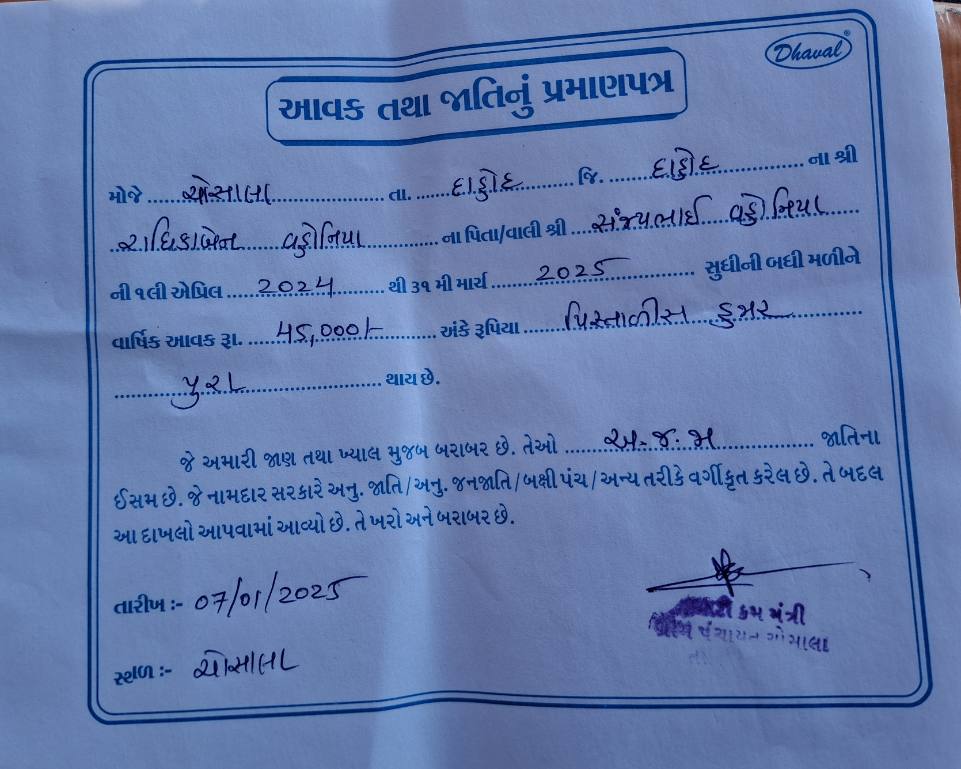 Dhaval
આવક તથા જાતિનું પ્રમાણપત્ર
મોજે ચોસાલા તા. દાહોદ જિ. દાહોદ ના શ્રી
રાધિકાબેન વહોનિયા ના પિતા/વાલી શ્રી સંજયભાઈ વહોનિયા
ની ૧લી એપ્રિલ 2024 થી ૩૧ મી માર્ચ 2025 સુધીની બધી મળીને
વાર્ષિક આવક રૂા. 45,000/- અંકે રૂપિયા પિસ્તાળીસ હજાર
પુરા થાય છે.
જે અમારી જાણ તથા ખ્યાલ મુજબ બરાબર છે. તેઓ અ.જ.જા જાતિના
ઈસમ છે. જે નામદાર સરકારે અનુ. જાતિ/અનુ. જનજાતિ/બક્ષી પંચ/અન્ય તરીકે વર્ગીકૃત કરેલ છે. તે બદલ
આ દાખલો આપવામાં આવ્યો છે. તે ખરો અને બરાબર છે.
તારીખ :- 07/01/2025
કમ મંત્રી
પંચાયત
સ્થળ :- ચોસાલા